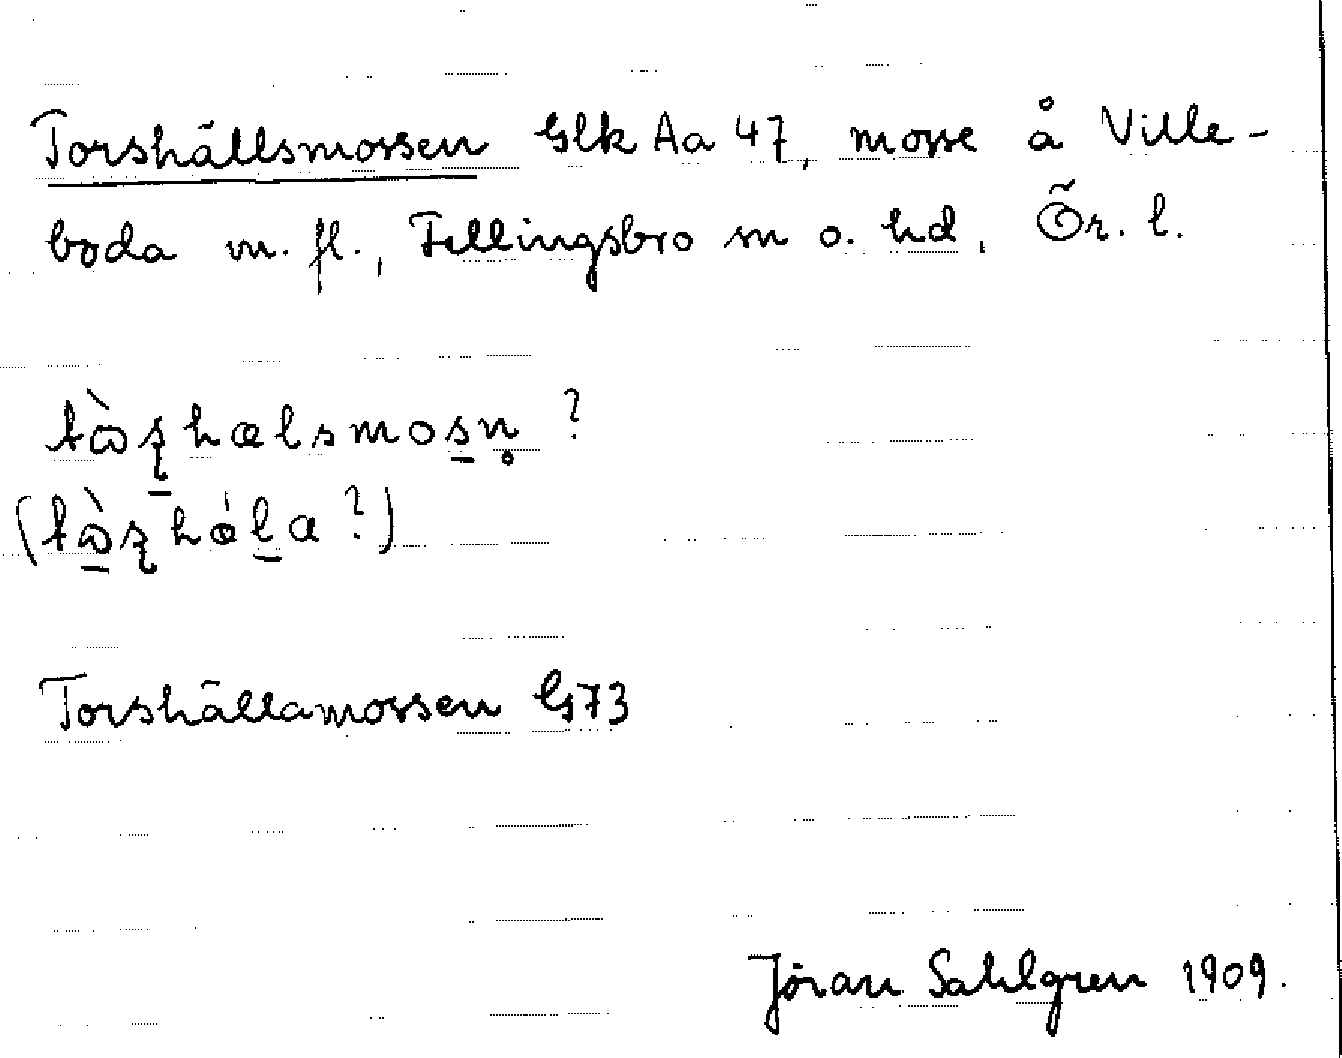 Torshällsmossen Glk Aa 47, mosse å Ville-
boda m. fl., Fellingsbro sn o. hd, Ör. l.
tɷ̀ʂhælsmosn̥ ?
(tɷ̀ʂhǽla ?)
Torshällamossen G73
Jöran Sahlgren 1909.